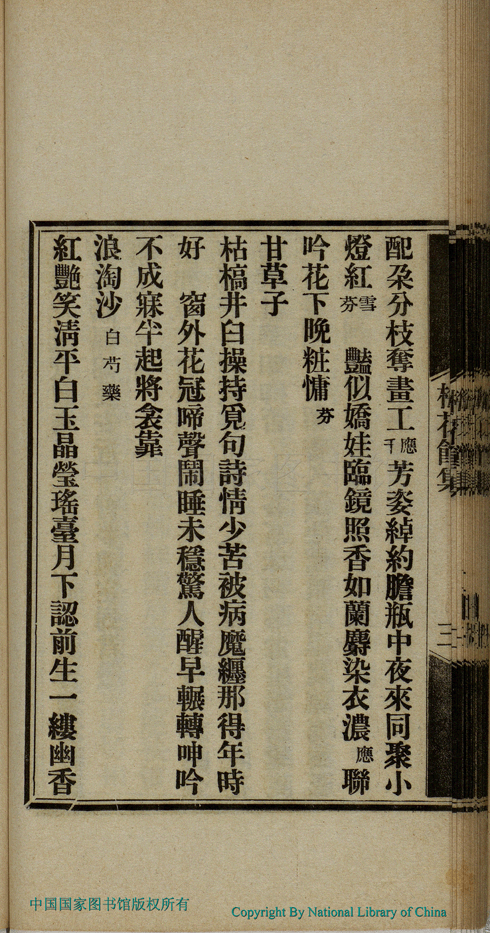 配朶分枝奪畫工應千芳姿綽約膽瓶中夜來同聚小
燈紅雪芬　豔似嬌娃臨鏡照香如蘭麝染衣濃應聯
吟花下晚粧慵芬
甘草子
枯槁井臼操持覓句詩情少苦被病魔纏那得年時
好　窗外花冠啼聲鬧睡未穩驚人醒早輾轉呻吟
不成寐半起將衾靠
浪淘沙白芍藥
紅艷笑淸平白玉晶瑩瑤臺月下認前生一縷幽香
花館集
三
中国国家图书馆版权所有
Copyright By National Library of China